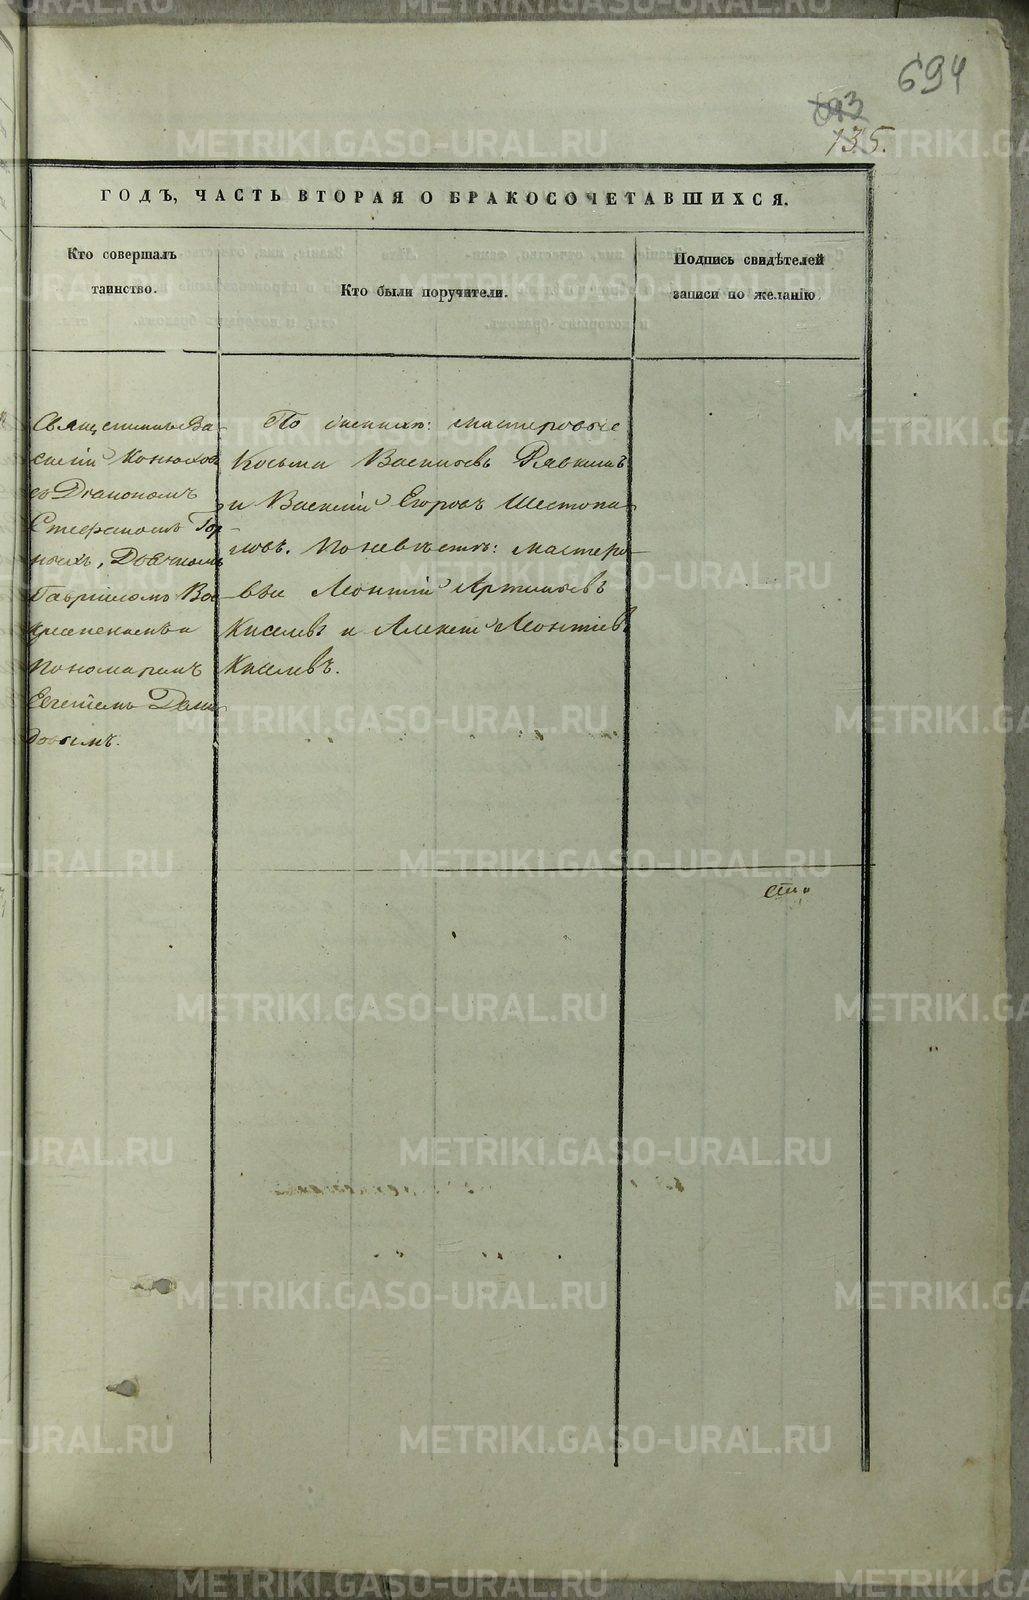 694
693
135.
ГОДЪ, ЧАСТЬ ВТОРАЯ О БРАКОСОЧЕТАВШИХСЯ.
Кто совершалъ
таинство.
Кто были поручители.
Подпись свидѣтелей
записи по желанію.
Священникъ Ва-
силій Конюховъ
съ Діакономъ
Стефаномъ Гор-
ныхъ, Дьячкомъ
Гавріиломъ Вос-
кресенскимъ и
пономаремъ
Евгеніемъ Деми-
довымъ.
По женихѣ: мастеровые
Косьма Васильевъ Рявкинъ
и Василій Егоровъ Шестопа-
ловъ. По невѣстѣ: мастеро-
вые Леонтій Артемьевъ
Киселевъ и Алексѣй Леонтьевъ
Киселевъ.
METRIKI.GASO-URAL.RU